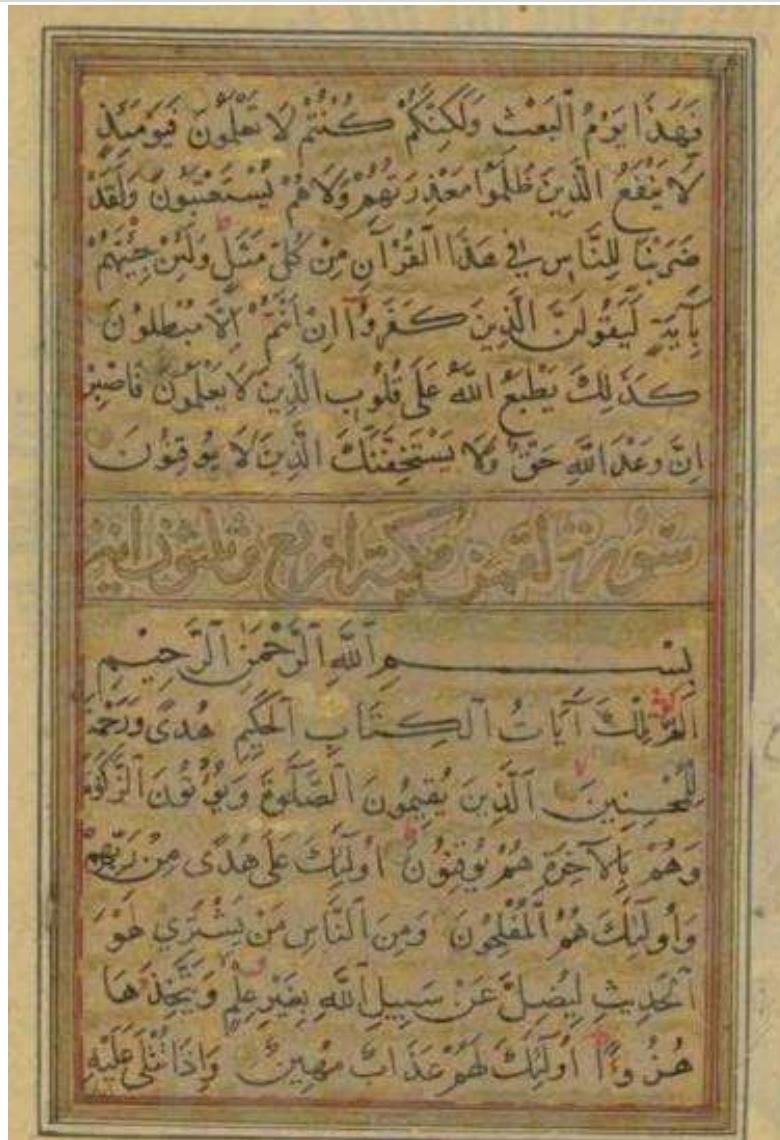 فَهَذَا يَوْمُ الْبَعْثِ وَلَكِنَّكُمْ كُنْتُمْ لَا تَعْلَمُونَ فَيَوْمَئِذٍ
لَا يَنْفَعُ الَّذِينَ ظَلَمُوا مَعْذِرَتُهُمْ وَلَا هُمْ يُسْتَعْتَبُونَ وَلَقَدْ
ضَرَبْنَا لِلنَّاسِ فِي هَذَا الْقُرْآنِ مِنْ كُلِّ مَثَلٍ وَلَئِنْ جِئْتَهُمْ
بِآيَةٍ لَيَقُولَنَّ الَّذِينَ كَفَرُوا إِنْ أَنْتُمْ إِلَّا مُبْطِلُونَ
كَذَلِكَ يَطْبَعُ اللَّهُ عَلَى قُلُوبِ الَّذِينَ لَا يَعْلَمُونَ فَاصْبِرْ
اِنَّ وَعْدَ اللَّهِ حَقٌّ وَلَا يَسْتَخِفَّنَّكَ الَّذِينَ لَا يُوقِنُونَ
سورة لقمن مكية اربع وثلثون اية
بِسْمِ اللَّهِ الرَّحْمَنِ الرَّحِيمِ
الم تِلْكَ آيَاتُ الْكِتَابِ الْحَكِيمِ هُدًى وَرَحْمَةً
لِلْمُحْسِنِينَ الَّذِينَ يُقِيمُونَ الصَّلٰوةَ وَيُؤْتُونَ الزَّكٰوةَ
وَهُمْ بِالْآخِرَةِ هُمْ يُوقِنُونَ اُولَئِكَ عَلَى هُدًى مِنْ رَبِّهِمْ
وَاُولَئِكَ هُمُ الْمُفْلِحُونَ وَمِنَ النَّاسِ مَنْ يَشْتَرِي لَهْوَ
الْحَدِيثِ لِيُضِلَّ عَنْ سَبِيلِ اللَّهِ بِغَيْرِ عِلْمٍ وَيَتَّخِذَهَا
هُزُوًا اُولَئِكَ لَهُمْ عَذَابٌ مُهِينٌ وَاِذَا تُتْلَى عَلَيْهِ